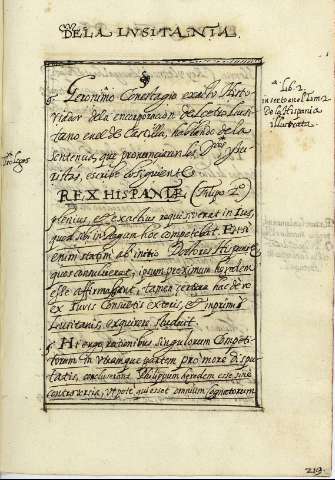 DE LA LUSITANIA.
Geronimo Conestagio exacto Histo-
riador de la encorporacion de el cetro Lusi-
tano en el de Castilla, hablando de la
sentencia, que pronunciaron los Juris-
tas, escribe lo siguiente
REX HISPANIÆ (Filipo 2º)
plenius, et exactius requisiverat in Ius,
quod sibi in Regnum hoc competebat. Etsi
enim statim ab initio Doctores Hispani
quos consuluerat, ipsum proximum hæredem
esse affirmassent, tamen certiora hac de re
ex Iuris Consultis exteris, et inprimis
Lusitanis, exquirere studuit
Hi ergo rationibus singulorum Competi-
torum in utramque partem pro more dispu-
tatis, conclusionem Philippum hæredem esse sine
controversia, utpote qui esset omnium cognatorum
Lib. 2
in sexto ano el tom. 2
De la Hispania
illustrata
213